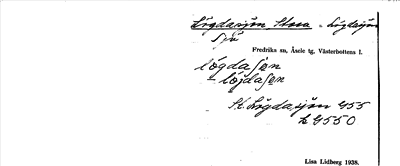 Lögdasjön, Stora = Lögdasjön
sjö
Fredrika sn, Åsele tg, Västerbottens l.
lögdasøn
= löjdasøn
St. Lögdasjön GSS
Lisa Lidberg 1938.